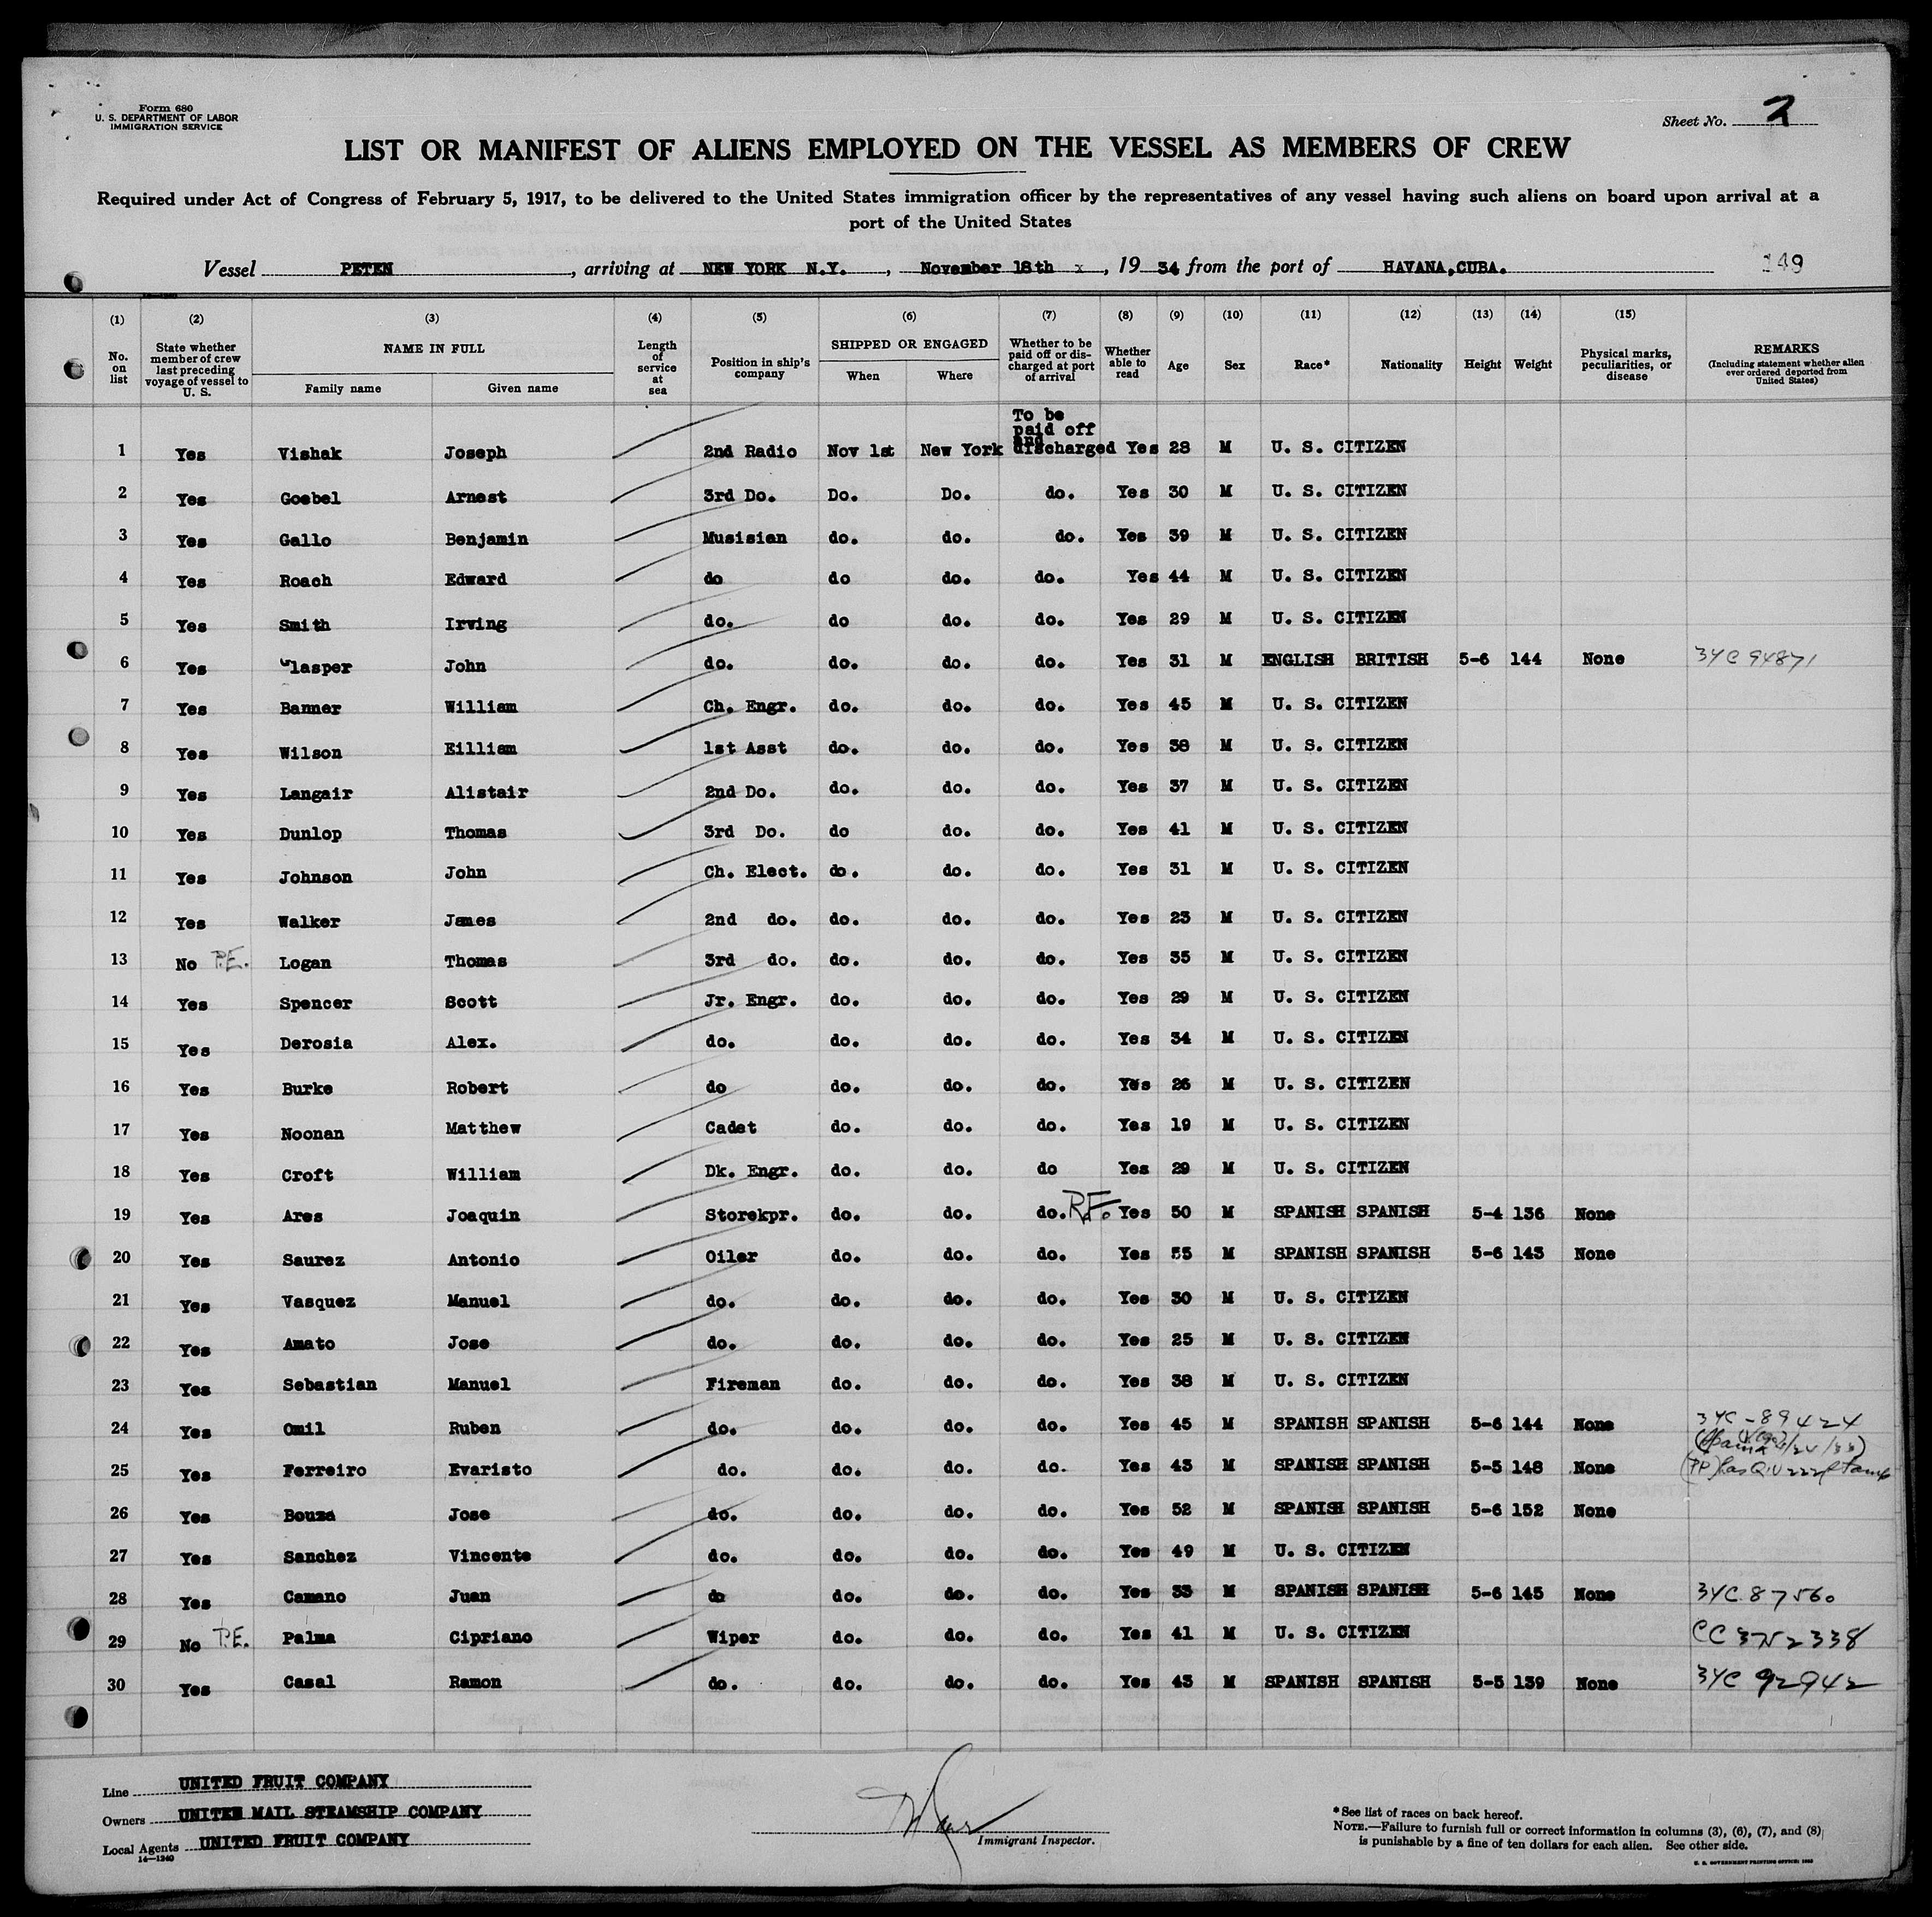 Form 680
U. S. DEPARTMENT OF LABOR
IMMIGRATION SERVICE
Sheet No. 2
LIST OR MANIFEST OF ALIENS EMPLOYED ON THE VESSEL AS MEMBERS OF CREW
Required under Act of Congress of February 5, 1917, to be delivered to the United States immigration officer by the representatives of any vessel having such aliens on board upon arrival at a
port of the United States
Vessel PETEN, arriving at NEW YORK N.Y., November 18th x, 19 34 from the port of HAVANA,CUBA. 149
(1) (2) (3) (4) (5) (6) (7) (8) (9) (10) (11) (12) (13) (14) (15)
No. on list State whether member of crew last preceding voyage of vessel to U. S. NAME IN FULL Family name Given name Length of service at sea Position in ship's company SHIPPED OR ENGAGED When Where Whether to be paid off or discharged at port of arrival Whether able to read Age Sex Race* Nationality Height Weight Physical marks, peculiarities, or disease REMARKS (Including statement whether alien ever ordered deported from United States)
To be
paid off
and
1 Yes Vishak Joseph 2nd Radio Nov 1st New York discharged Yes 28 M U. S. CITIZEN
2 Yes Goebel Arnest 3rd Do. Do. Do. do. Yes 30 M U. S. CITIZEN
3 Yes Gallo Benjamin Musisian do. do. do. Yes 39 M U. S. CITIZEN
4 Yes Roach Edward do do do. do. Yes 44 M U. S. CITIZEN
5 Yes Smith Irving do. do do. do. Yes 29 M U. S. CITIZEN
6 Yes Glasper John do. do. do. do. Yes 31 M ENGLISH BRITISH 5-6 144 None 3YC 94871
7 Yes Banner William Ch. Engr. do. do. do. Yes 45 M U. S. CITIZEN
8 Yes Wilson Eilliam 1st Asst do. do. do. Yes 38 M U. S. CITIZEN
9 Yes Langair Alistair 2nd Do. do. do. do. Yes 37 M U. S. CITIZEN
10 Yes Dunlop Thomas 3rd Do. do do. do. Yes 41 M U. S. CITIZEN
11 Yes Johnson John Ch. Elect. do. do. do. Yes 31 M U. S. CITIZEN
12 Yes Walker James 2nd do. do. do. do. Yes 23 M U. S. CITIZEN
13 No P.E. Logan Thomas 3rd do. do. do. do. Yes 35 M U. S. CITIZEN
14 Yes Spencer Scott Jr. Engr. do. do. do. Yes 29 M U. S. CITIZEN
15 Yes Derosia Alex. do. do. do. do. Yes 34 M U. S. CITIZEN
16 Yes Burke Robert do do. do. do. Yes 26 M U. S. CITIZEN
17 Yes Noonan Matthew Cadet do. do. do. Yes 19 M U. S. CITIZEN
18 Yes Croft William Dk. Engr. do. do. do Yes 29 M U. S. CITIZEN
19 Yes Ares Joaquin Storekpr. do. do. do. R.F. Yes 50 M SPANISH SPANISH 5-4 136 None
20 Yes Saurez Antonio Oiler do. do. do. Yes 55 M SPANISH SPANISH 5-6 143 None
21 Yes Vasquez Manuel do. do. do. do. Yes 30 M U. S. CITIZEN
22 Yes Amato Jose do. do. do. do. Yes 25 M U. S. CITIZEN
23 Yes Sebastian Manuel Fireman do. do. do. Yes 38 M U. S. CITIZEN
24 Yes Omil Ruben do. do. do. do. Yes 45 M SPANISH SPANISH 5-6 144 None 3YC-89424
25 Yes Ferreiro Evaristo do. do. do. do. Yes 43 M SPANISH SPANISH 5-5 148 None
26 Yes Bouza Jose do. do. do. do. Yes 52 M SPANISH SPANISH 5-6 152 None
27 Yes Sanchez Vincente do. do. do. do. Yes 49 M U. S. CITIZEN
28 Yes Camano Juan do do. do. do. Yes 33 M SPANISH SPANISH 5-6 145 None 3YC.87560
29 No P.E. Palma Cipriano Wiper do. do. do. Yes 41 M U. S. CITIZEN
30 Yes Casal Ramon do. do. do. do. Yes 43 M SPANISH SPANISH 5-5 139 None 3YC 92942
Line UNITED FRUIT COMPANY
Owners UNITED MAIL STEAMSHIP COMPANY
Local Agents UNITED FRUIT COMPANY
14—1240
Immigrant Inspector.
*See list of races on back hereof.
NOTE.—Failure to furnish full or correct information in columns (3), (6), (7), and (8)
is punishable by a fine of ten dollars for each alien. See other side.
U. S. GOVERNMENT PRINTING OFFICE: